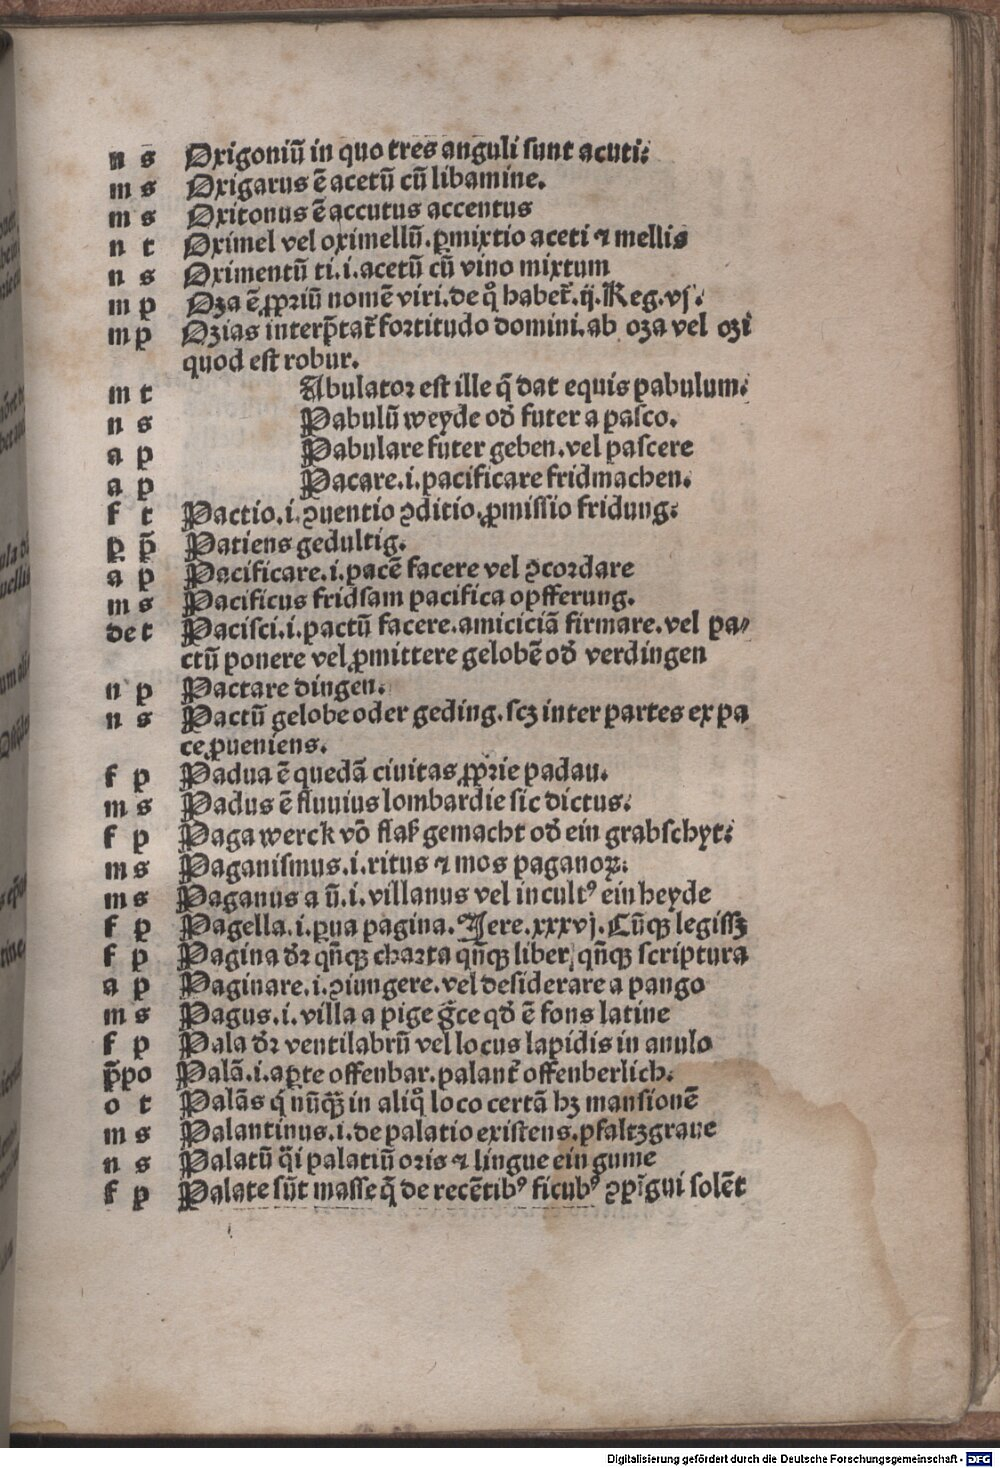 n s Oxigoniū in quo tres anguli sunt acuti:
m s Oxigarus ē acetū cū libamine.
m s Oxitonus ē accutus accentus
n t Oximel vel oximellū. ꝑmixtio aceti ⁊ mellis
n s Oximentū ti. i. acetū cū vino mixtum
m p Oza ē ꝓpriū nomē viri. de qͦ habet̄. ij. Reg. vj.
m p Ozias interp̄tat̄ fortitudo domini. ab oza vel ozi
quod est robur.
m t Abulator est ille q̄ dat equis pabulum.
n s Pabulū weyde od̛ futer a pasco.
a p Pabulare futer geben. vel pascere
a p Pacare. i. pacificare fridmachen.
f t Pactio. i. ꝯuentio ꝯditio. ꝓmissio fridung:
p p̄ Patiens gedultig.
a p Pacificare. i. pacē facere vel ꝯcordare
m s Pacificus fridsam pacifica opfferung.
de t Pacisci. i. pactū facere. amiciciā firmare. vel pa⸗
ctū ponere vel ꝓmittere gelobē od̛ verdingen
n p Pactare dingen.
n s Pactū gelobe oder geding. scꝫ inter partes ex pa
ce ꝓueniens.
f p Padua ē quedā ciuitas ꝓprie padau.
m s Padus ē fluuius lombardie sic dictus:
f p Paga werck vō flaß gemacht od̛ ein grabschyt:
m s Paganismus. i. ritus ⁊ mos paganoꝝ.
m s Paganus a ū. i. villanus vel incultꝰ ein heyde
f p Pagella. i. ꝑua pagina. Jere. xxxvj. Cūqꝫ legissꝫ
f p Pagina d̛r qn̄qꝫ charta qn̄qꝫ liber, qn̄qꝫ scriptura
a p Paginare. i. ꝯiungere. vel desiderare a pango
m s Pagus. i. villa a pige ḡce qd̛ ē fons latine
f p Pala d̛r ventilabrū vel locus lapidis in anulo
p̄po Palā. i. aꝑte offenbar. palant̄ offenberlich.
o t Palās q̇ nūqͣꝫ in aliqͦ loco certā hꝫ mansionē
m s Palantinus. i. de palatio existens. pfaltzgraue
n s Palatū qͣi palatiū oris ⁊ lingue ein gume
f p Palate sūt masse q̄ de recētibꝰ ficubꝰ ꝯpīgui solēt
Digitalisierung gefördert durch die Deutsche Forschungsgemeinschaft - DFG